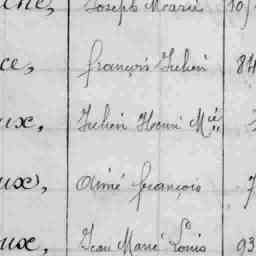 Joseph Marie
ce, françois Julien 84
ux, Julien Henri Mie
ux, aimé françois 7
ux, Jean Marie Louis 93